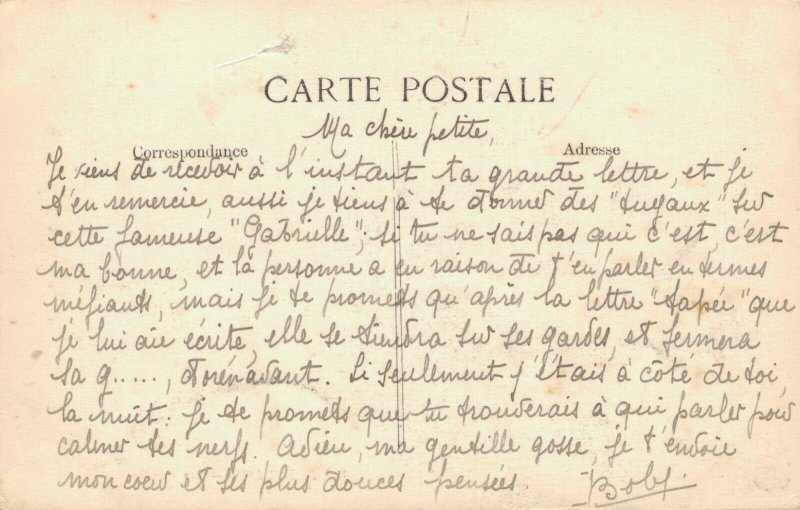 CARTE POSTALE
Ma chère petite,
Correspondance
Adresse
Je viens de recevoir à l'instant ta grande lettre, et je
t'en remercie, aussi je tiens à te donner des "tuyaux" sur
cette fameuse "Gabrielle"; si tu ne sais pas qui c'est, c'est
ma bonne, et la personne a eu raison de t'en parler en termes
méfiants, mais je te promets qu'après la lettre "tapée" que
je lui aie écrite, elle se tiendra sur ses gardes, et fermera
sa g....., dorénavant. Si seulement j'étais à côté de toi,
la nuit; je te promets que tu trouverais à qui parler pour
calmer tes nerfs. Adieu, ma gentille gosse, je t'envoie
mon coeur et ses plus douces pensées. Boby.